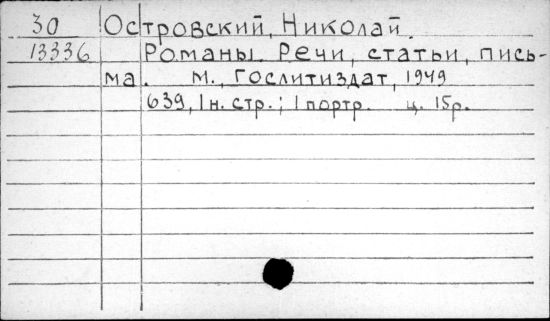 30 Островский, Николай.
13336 Романы. Речи, статьи, пись-
ма. М., Гослитиздат, 1949
639, 1 н. стр.; 1 портр. ц. 15р.